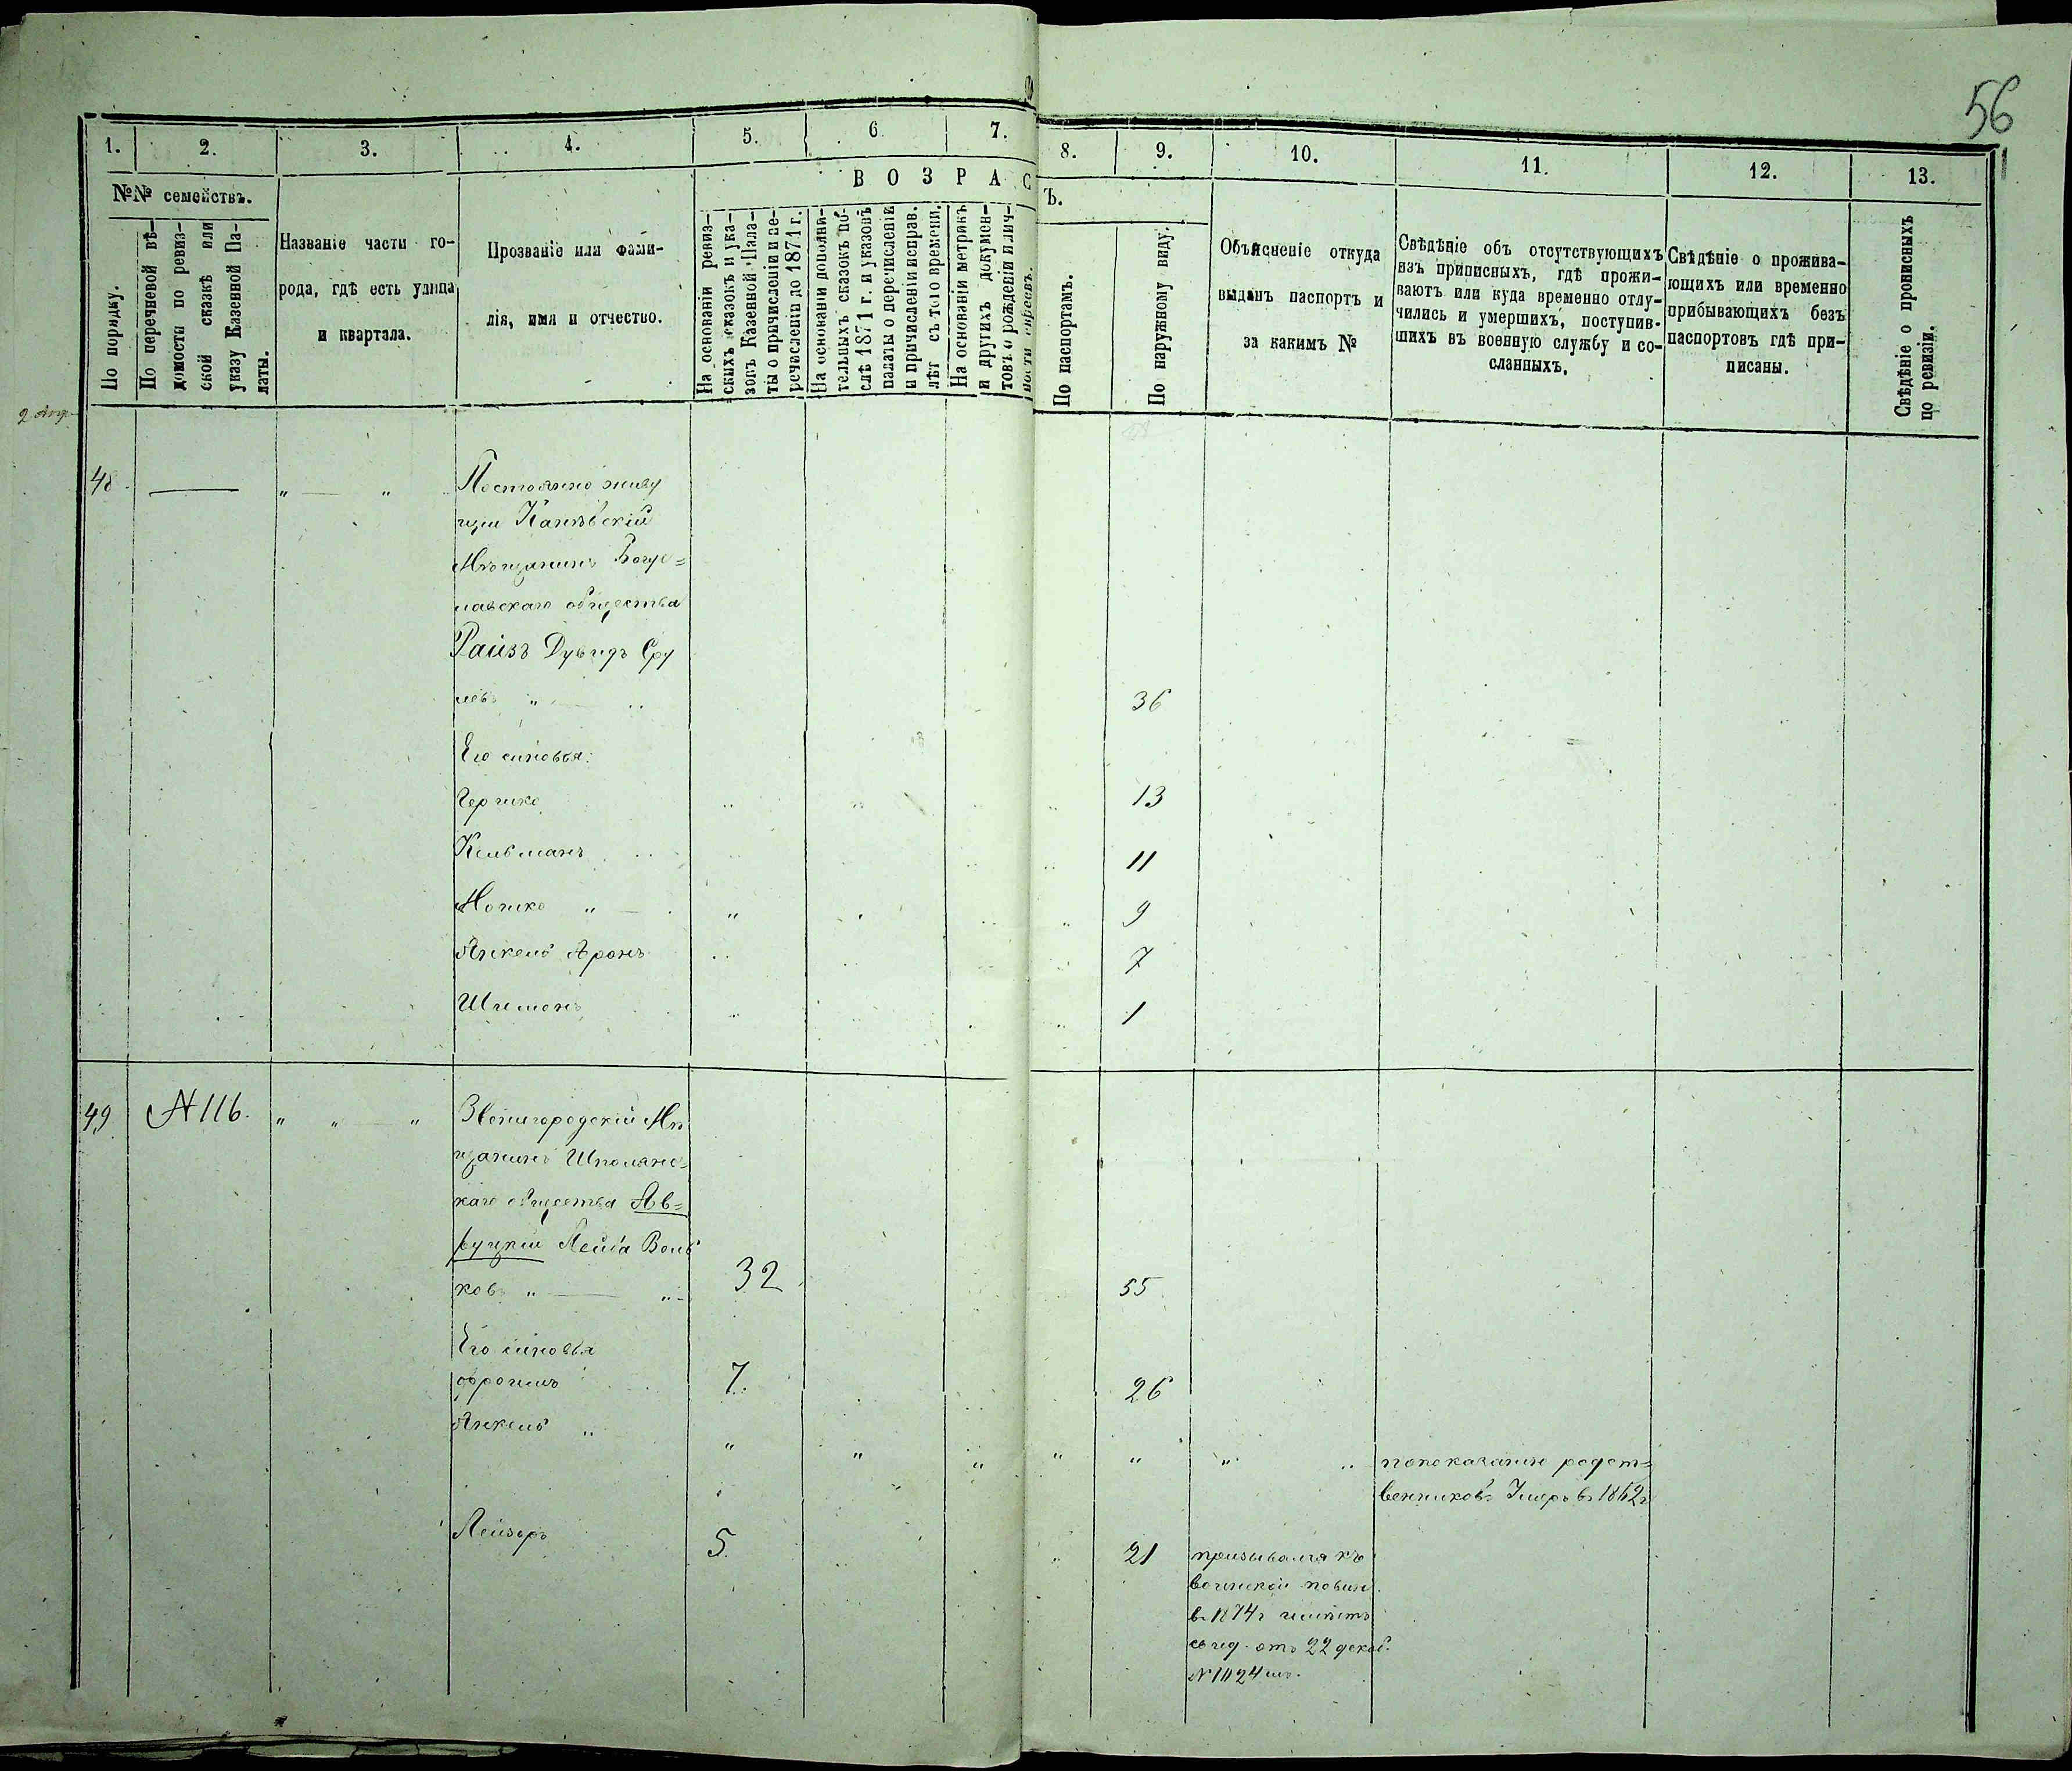 56
1.
2.
3.
4.
5.
6.
7.
8.
9.
10.
11.
12.
13.
№№ семействъ.
По порядку.
По перечневой вѣ-
домости по ревиз-
ской сказкѣ или
указу Казенной Па-
латы.
Названіе части го-
рода, гдѣ есть улица
и квартала.
Прозваніе или фами-
лія, имя и отчество.
ВОЗРАС
Ъ.
На основаніи ревиз-
скихъ сказокъ и ука-
зовъ Казенной Пала-
ты о причисленіи и пе-
речисленіи до 1871 г.
На основаніи дополни-
тельныхъ сказокъ по-
слѣ 1871 г. и указовъ
палаты о перечисленіи
и причисленіи исправ.
лѣт съ того времени.
На основаніи метрикъ
и другихъ докумен-
товъ о рожденіи и лич-
ности евреевъ.
По паспортамъ.
По наружному виду.
Объясненіе откуда
выданъ паспортъ и
за какимъ №
Свѣдѣніе объ отсутствующихъ
изъ приписныхъ, гдѣ прожи-
ваютъ или куда временно отлу-
чились и умершихъ, поступив-
шихъ въ военную службу и со-
сланныхъ.
Свѣдѣніе о прожива-
ющихъ или временно
прибывающихъ безъ
паспортовъ гдѣ при-
писаны.
Свѣдѣніе о прописныхъ
по ревизіи.
48 — „ — „ Постоянно живу
щій Каневскій
Мѣщанинъ Богу=
славскаго общества
Райзъ Дувидъ Сру
левъ „ 36
Его синовья:
Гершко 13
Кельманъ 11
Мошко „ 9
Янкель Аронъ 7
Шимонъ 1
49 N 116. „ „ „ Звенигородскій Мѣ
щанинъ Шполянс=
каго общества Ав=
руцкій Лейба Воль
ковъ „ — „ 32 55
Его синовья
Фроимъ 7. 26
Янкель „ „ „ „ „ „ „ „ по показанію родст=
венниковъ Умеръ в 1862 г
Лейзоръ 5. 21 призывался къ
воинской повин.
в 1874 г имѣетъ
свид. отъ 22 декаб.